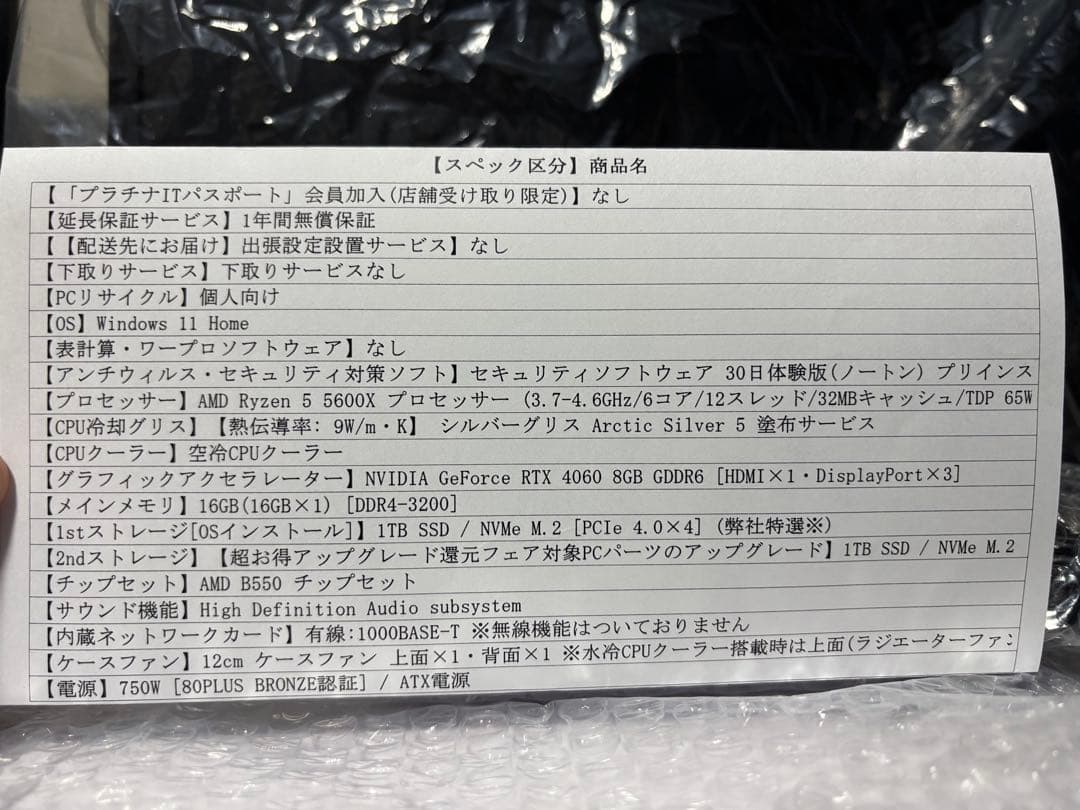 【スペック区分】商品名
【「プラチナITパスポート」会員加入(店舗受け取り限定)】なし
【延長保証サービス】1年間無償保証
【【配送先にお届け】出張設定設置サービス】なし
【下取りサービス】下取りサービスなし
【PCリサイクル】個人向け
【OS】Windows 11 Home
【表計算・ワープロソフトウェア】なし
【アンチウィルス・セキュリティ対策ソフト】セキュリティソフトウェア 30日体験版(ノートン) プリインス
【プロセッサー】AMD Ryzen 5 5600X プロセッサー (3.7-4.6GHz/6コア/12スレッド/32MBキャッシュ/TDP 65W
【CPU冷却グリス】【熱伝導率: 9W/m・K】 シルバーグリス Arctic Silver 5 塗布サービス
【CPUクーラー】空冷CPUクーラー
【グラフィックアクセラレーター】NVIDIA GeForce RTX 4060 8GB GDDR6 [HDMI×1・DisplayPort×3]
【メインメモリ】16GB(16GB×1) [DDR4-3200]
【1stストレージ[OSインストール]】1TB SSD / NVMe M.2 [PCIe 4.0×4] (弊社特選※)
【2ndストレージ】【超お得アップグレード還元フェア対象PCパーツのアップグレード】1TB SSD / NVMe M.2
【チップセット】AMD B550 チップセット
【サウンド機能】High Definition Audio subsystem
【内蔵ネットワークカード】有線:1000BASE-T ※無線機能はついておりません
【ケースファン】12cm ケースファン 上面×1・背面×1 ※水冷CPUクーラー搭載時は上面(ラジエーターファン
【電源】750W [80PLUS BRONZE認証] / ATX電源